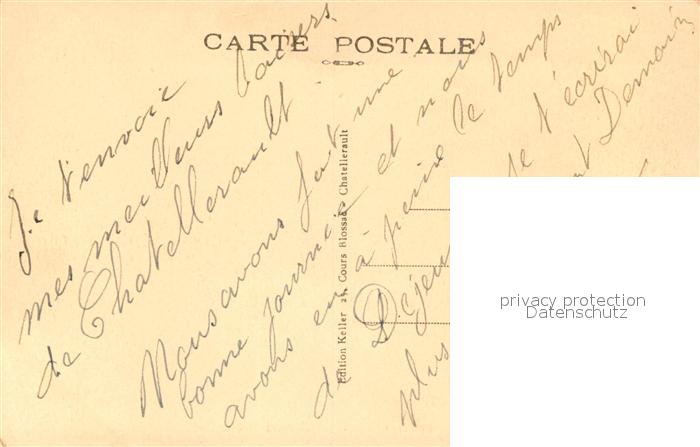 CARTE POSTALE
Je t'envoie
mes meilleurs baisers
de Chatellerault.
Nous avons fait une
bonne journée et nous
avons eu à peine le temps
de Déjeu
je t'écrirai
plus
Demain
Edition Keller 2 Cours Blossac - Chatellerault
privacy protection
Datenschutz